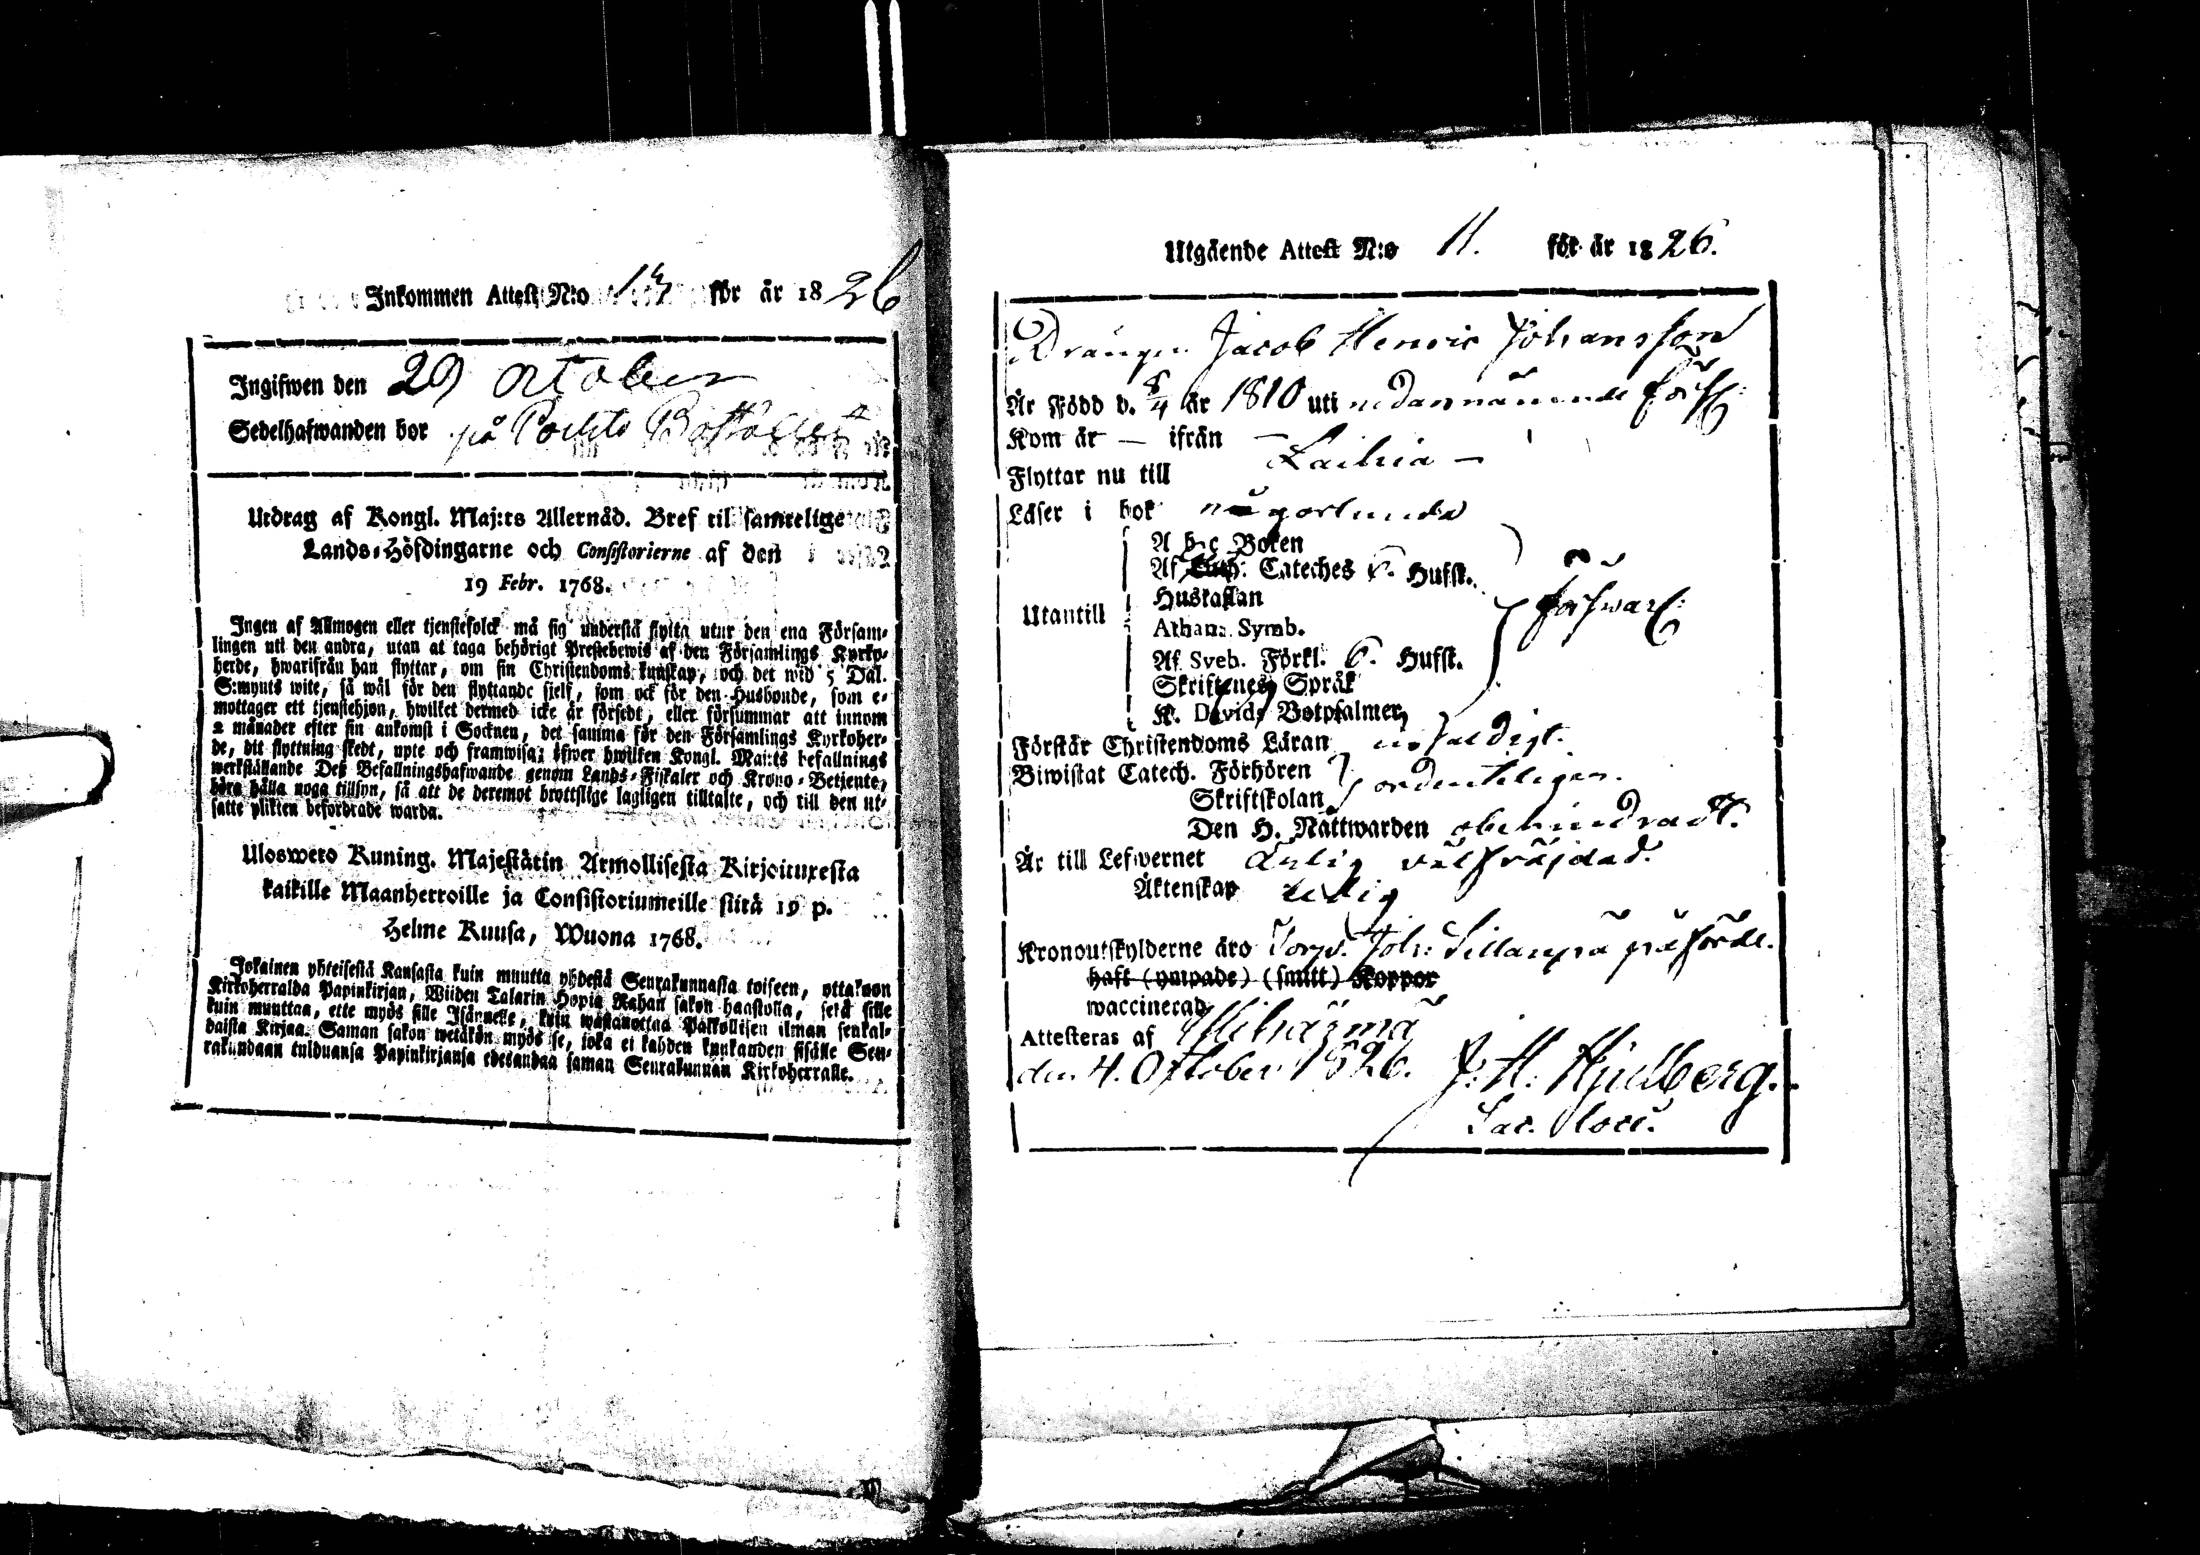 Inkommen Attest N:o 13 för år 1826
Ingifwen den 29 october
Sedelhafwanden bor på Bostället
Utdrag af Kongl. Maj:ts Allernåd. Bref til samtelige
Lands-Höfdingarne och Consistorierne af den
19 Febr. 1768.
Ingen af Allmogen eller tjenstefolck må sig understå flytta utur den ena Försam-
lingen uti den andra, utan at taga behörigt Prestebewis af den Församlings Kyrko-
herde, hwarifrån han flyttar, om sin Christendoms kunskap, och det wid 5 Dal.
S:mynts wite, så wäl för den flyttande sielf, som ock för den Husbonde, som e-
mottager ett tjenstehjon, hwilket dermed icke är försedt, eller försummar att innom
2 månader efter sin ankomst i Socknen, det samma för den Församlings Kyrkoher-
de, dit flyttning skedt, upte och framwisa; öfwer hwilken Kongl. Maj:ts befallnings
werkställande Deß Befallningshafwande genom Lands-Fiskaler och Krono-Betjente,
böra hålla noga tillsyn, så att de deremot brottslige lagligen tilltalte, och till den ut-
satte plikten befordrade warda.
Ulosweto Kuning. Majestätin Armollisesta Kirjoituxesta
kaikille Maanherroille ja Consistoriumeille siitä 19 p.
Helme Kuusa, Wuona 1768.
Jokainen yhteisestä Kansasta kuin muutta yhdestä Seurakunnasta toiseen, ottakoon
Kirkoherralda Papinkirjan, Wiiden Talarin Hopia Rahan sakon haastolla, sekä sille
kuin muuttaa, ette myös sille Isännelle, kuin wastanottaa Palkollisen ilman senkal-
daista Kirjaa. Saman sakon wetäkön myös se, joka ei kahden kuukauden sisälle Seu-
rakundaan tulduansa Papinkirjansa edesandaa saman Seurakunnan Kirkoherralle.
Utgående Attest N:o 11. för år 1826.
Drängen Jacob Henric Johansson
Är Född d. 8/4 år 1810 uti nedannämnde förs:
Kom år — ifrån —
Flyttar nu till Laihia —
Läser i bok någorlunda
A b c Boken
Af Luth: Cateches 6. Hufst.
Hustaflan
Utantill
Athana. Symb.
försvarl:
Af Sveb. Förkl. 6. Hufst.
Skriftenes Språk
K. Davids Botpsalmer
Förstår Christendoms Läran enfaldigt.
Biwistat Catech. Förhören
Skriftskolan ordenteligen.
Den H. Nattwarden obehindradt.
Är till Lefwernet ärlig välfräjdad.
Äktenskap ledig
Kronoutskylderne äro Torp. Joh: Sillanpä påförde.
haft (ympade) (smitt) Koppor
waccinerad
Attesteras af Ylihärmä
den 4. October 1826. J: H: Hjelberg.
Sac. Loci.